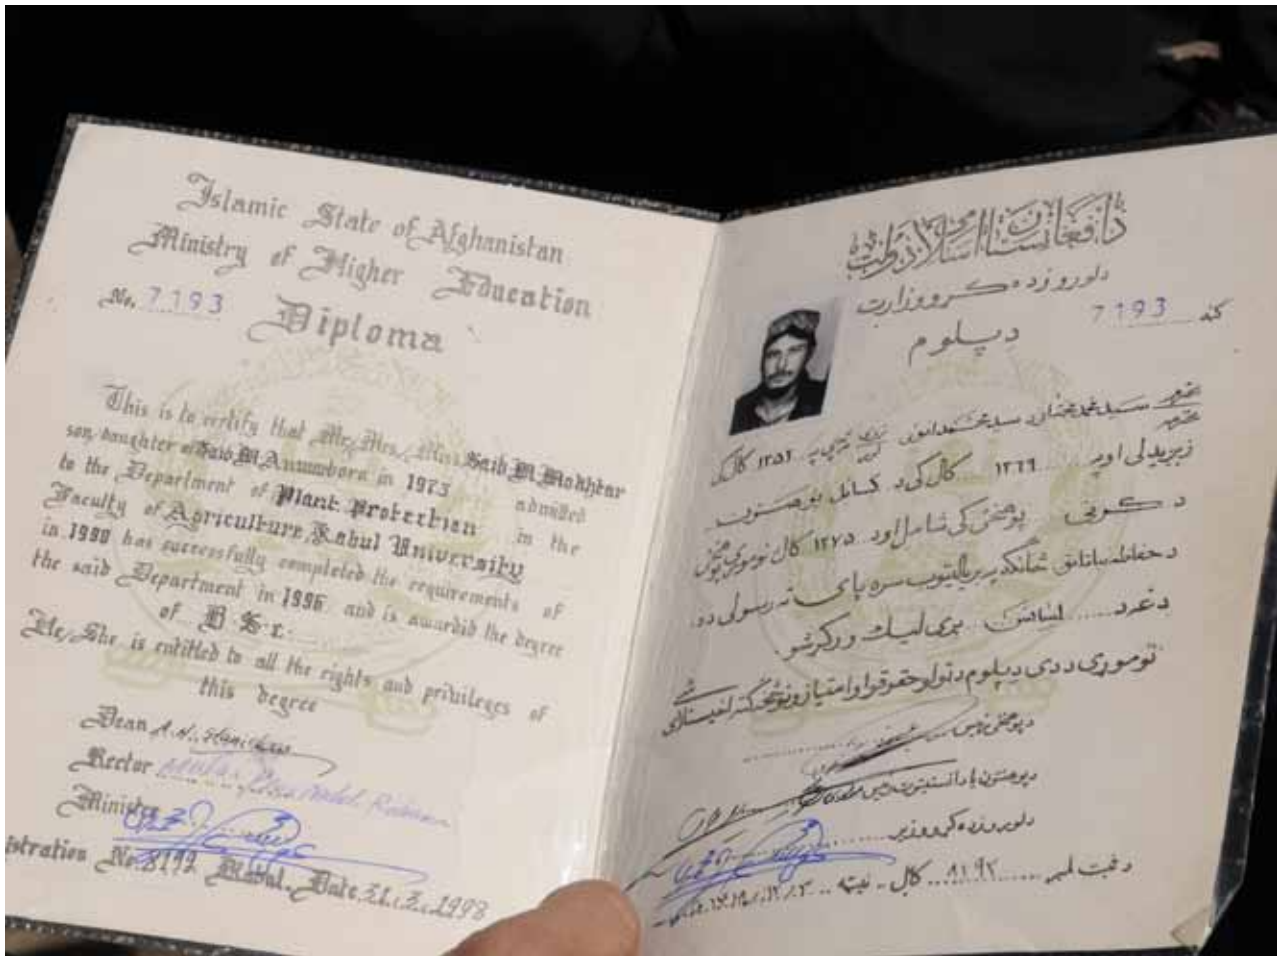 Islamic State of Afghanistan
Ministry of Higher Education
No. 7193
Diploma
This is to certify that Mr, Mrs, Miss Said M Mokhtar
son, daughter of Said M Anwar born in 1973 admitted
to the Department of Plant Protection in the
Faculty of Agriculture Kabul University
in 1990 has successfully completed the requirements of
the said Department in 1996 and is awarded the degree
of B Sc.
He/She is entitled to all the rights and privileges of
this degree
Dean
Rector
Minister
istration No. 8192 Kabul, Date. 31.3.1998
دافغانستان اسلامی دولت
دلوړو زده کړو وزارت
7193 ګڼه
دیپلوم
کال کی
زیږیدلی او په ۱۳۶۹ کال کی د کابل پوهنتون
د کرنی پوهنځی کی شامل او د ۱۳۷۵ کال
د حفاظه نباتاتو څانګه بریالیتوب سره پای ته رسولی ده.
د لسانس بری لیک ورکړ شو.
نوموړی ددی دیپلوم دټولو حقوقو او امتیازونو څخه ګټه اخیستلای شی
د پوهنځی رئیس
د پوهنتون یا د انستیتوت رئیس
دلوړو زده کړو وزیر
د ثبت لمبر ۸۱۹۲ کابل - نیټه